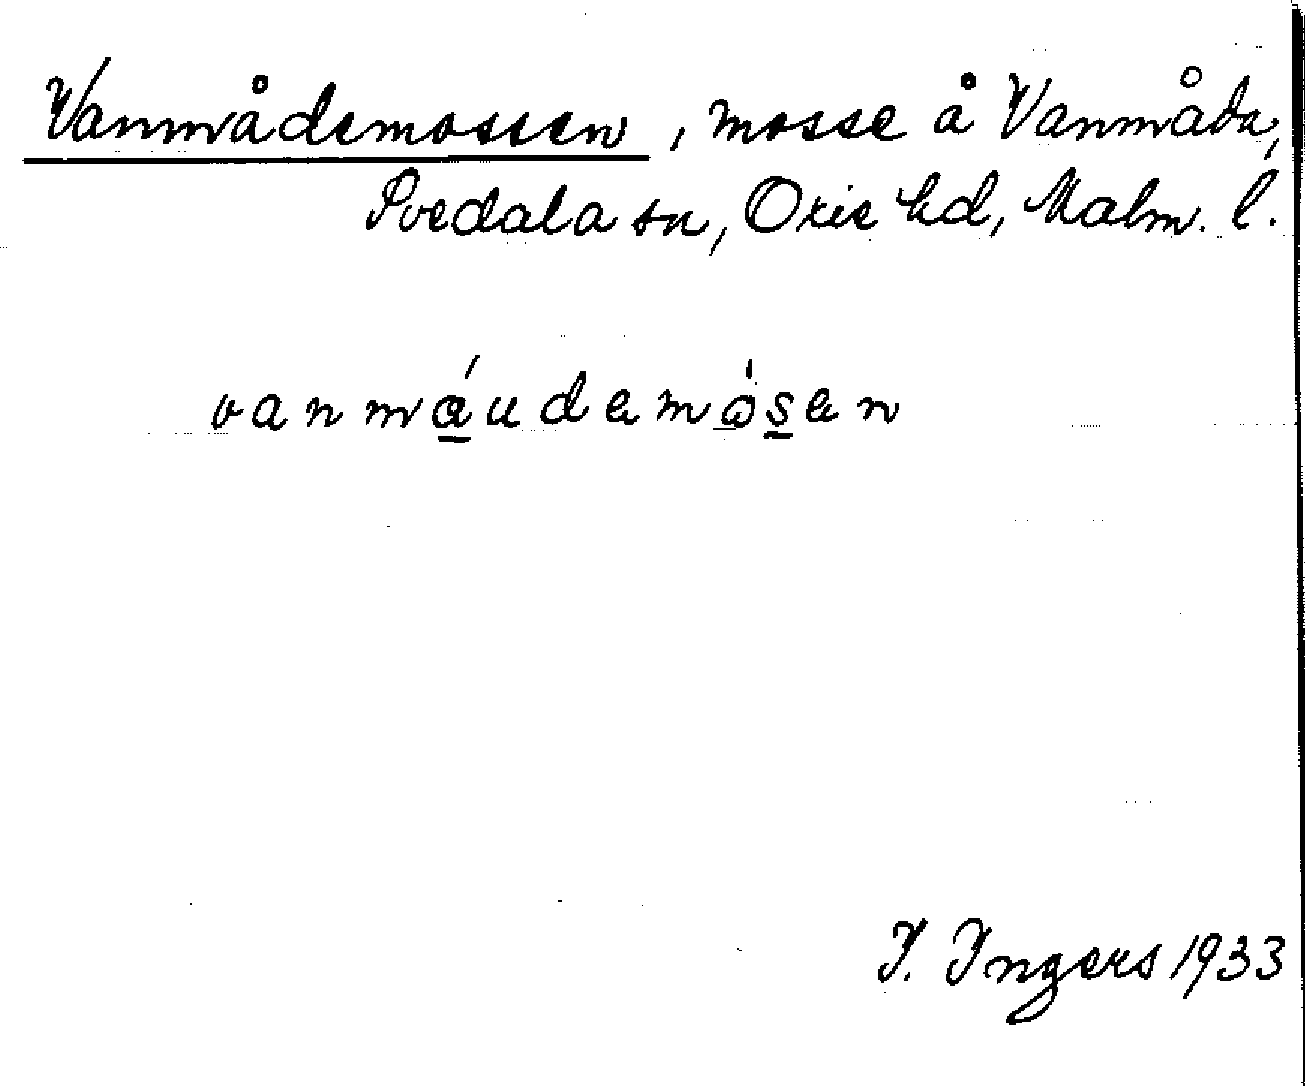 Vanmådemossen, mosse å Vanmåda,
Svedala sn, Oxie hd, Malm. l.
vanmáudemòsen
I. Ingers 1933